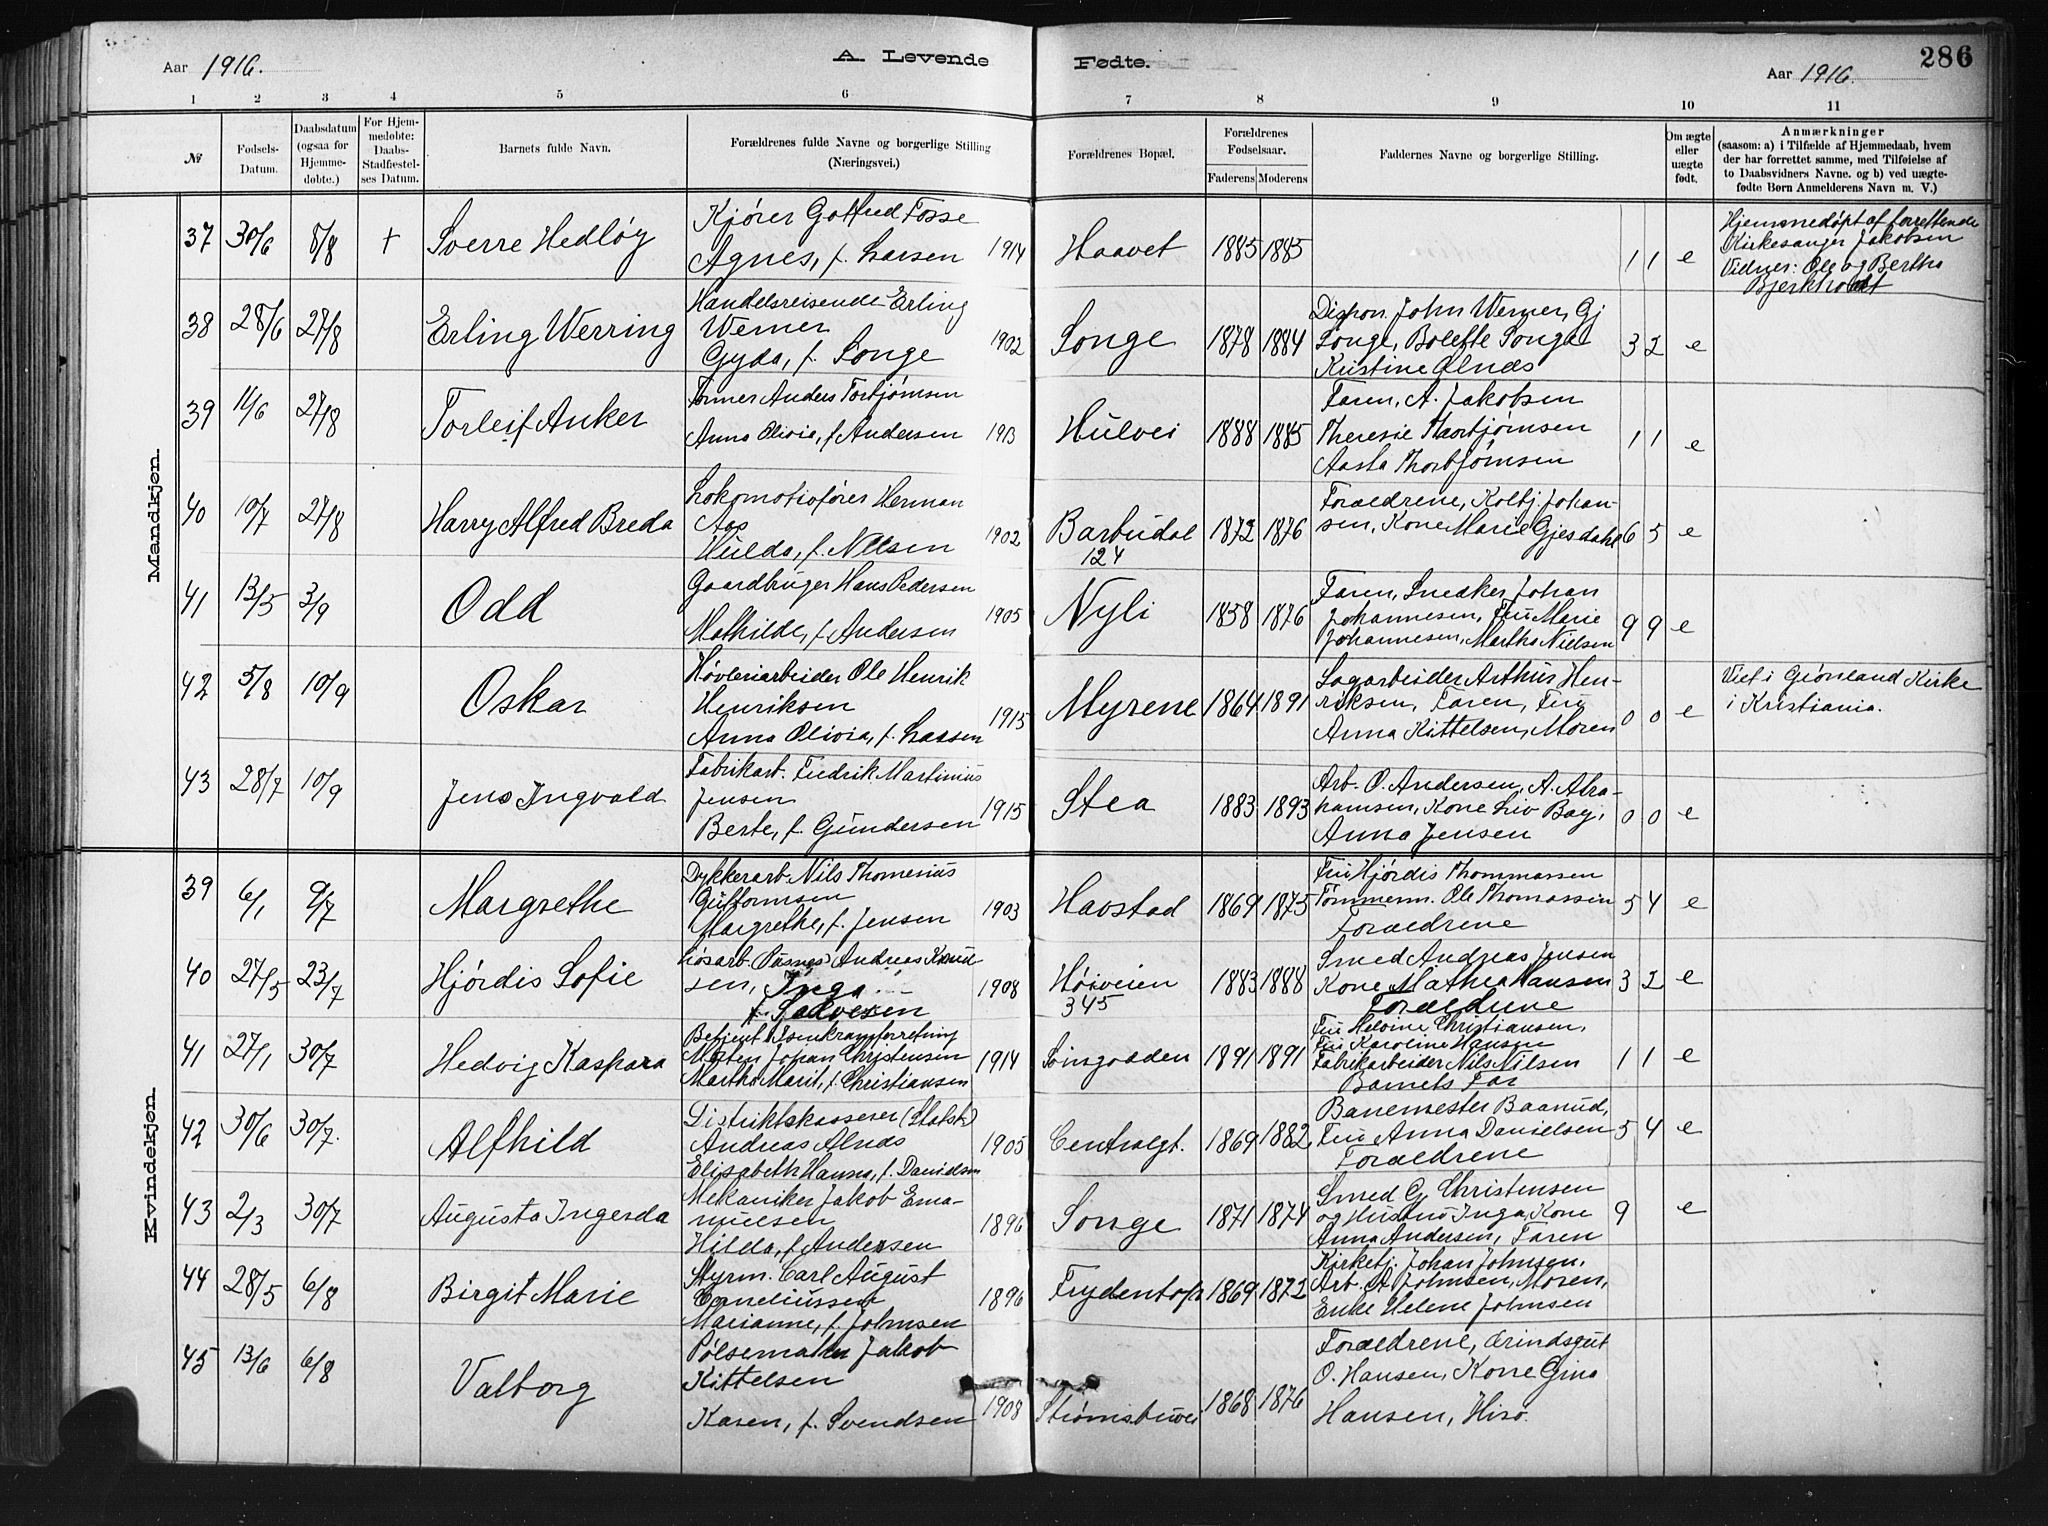 Aar 1916. A. Levende Fødte. Aar 1916. 286
1 2 3 4 5 6 7 8 9 10 11
№
Fødsels-Datum.
Daabsdatum (ogsaa for Hjemme-døbte.)
For Hjem-medøbte: Daabs-Stadfæstel-ses Datum.
Barnets fulde Navn.
Forældrenes fulde Navne og borgerlige Stilling (Næringsvei.)
Forældrenes Bopæl.
Forældrenes Fødselsaar.
Faderens Moderens
Faddernes Navne og borgerlige Stilling.
Om ægte eller uægte født.
Anmærkninger
(saasom: a) i Tilfælde af Hjemmedaab, hvem
der har forrettet samme, med Tilføielse af
to Daabsvidners Navne. og b) ved uægte-
fødte Børn Anmelderens Navn m. V.)
Mandkjøn.
37 30/6 8/8 + Sverre Hedløy
Kjører Gotfred Fosse
Agnes, f. Larsen 1914
Haavet 1885 1885
1 1 e
Hjemmedøpt af forrettende
Kirkesanger Jakobsen
Vidner: Ole og Bertha
Bjerkholdt
38 28/6 27/8 Erling Werring
Handelsreisende Erling
Werner
Gyda, f. Songe 1902
Songe 1878 1884
Dispon. John Werner, Gj
Songe, Bolette Songe
Kristine Alnæs
3 2 e
39 11/6 27/8 Torleif Anker
Former Anders Torbjørnsen
Anna Olivia, f. Andersen 1913
Hulvei 1888 1885
Faren, A. Jakobsen
Theresie Thorbjørnsen
Aasta Thorbjørnsen
1 1 e
40 10/7 27/8 Harry Alfred Breda
Lokomotivfører Herman
Aas
Hulda, f. Nilsen 1902
Barbudal
124
1872 1876
Forældrene, Kolbj. Johan-
sen, Kone Marie Gjesdahl
6 5 e
41 13/5 3/9 Odd
Gaardbruger Hans Pedersen
Mathilde, f. Andersen 1905
Nyli 1858 1876
Faren, Snedker Johan
Johannesen, Fru Marie
Johannesen, Martha Nielsen
9 9 e
42 5/8 10/9 Oskar
Høvleriarbeider Ole Henrik
Henriksen
Anna Olivia, f. Larsen 1915
Myrene 1864 1891
Sagarbeider Arthur Hen-
riksen, Faren, Fru
Anna Kittelsen, Moren
0 0 e
Viet i Grønland Kirke
i Kristiania.
43 28/7 10/9 Jens Ingvald
Fabrikarb. Fredrik Martinius
Jensen
Berte, f. Gundersen 1915
Stea 1883 1893
Arb. O. Andersen, A. Abra-
hamsen, Kone Liv Bøy,
Anna Jensen
0 0 e
Kvindekjøn.
39 6/1 9/7 Margrethe
Dykkerarb. Nils Thomenius
Guttormsen
Margrethe, f. Jensen 1903
Havstad 1869 1875
Fru Hjørdis Thommassen
Tømmerm. Ole Thomassen
Forældrene
5 4 e
40 27/5 23/7 Hjørdis Sofie
Løsarb. Rasmus Andreas Knud
sen, Inga
f. Salvesen 1908
Høiveien
345
1883 1888
Smed Andreas Jensen
Kone Mathea Hansen
Forældrene
3 2 e
41 27/1 30/7 Hedvig Kaspara
Betjent Isenkramforretning
Morten Johan Christensen
Martha Marit, f. Christiansen 1914
1891 1891
Fru Helvine Christiansen,
Fru Karoline Hansen
Fabrikarbeider Nils Nilsen
Barnets Far
1 1 e
42 30/6 30/7. Alfhild
Distriktskasserer (Statsb)
Andreas Alnæs
Elisabeth Hanna, f. Danielsen 1905
Centralgt. 1869 1882
Banemester Baanrud,
Fru Anna Danielsen
Forældrene
5 4 e
43 2/3 30/7 Augusta Ingerda
Mekaniker Jakob Ema-
nuelsen
Hilda, f. Andersen 1896
Songe 1871 1874
Smed G. Christensen
og Hustru Inga, Kone
Anna Andersen, Faren
9 e
44 28/5 6/8 Birgit Marie
Styrm. Carl August
Corneliussen
Marianne, f. Johnsen 1896
Frydentop 1869 1872
Kirketj. Johan Johnsen,
Arb. A. Johnsen, Moren,
Enke Helene Johnsen
45 13/6 6/8 Valborg
Pølsemaker Jakob
Kittelsen
Karen, f. Svendsen 1908
Strømsbuvei 1868 1876
Forældrene, Grindsgut
O. Hansen, Kone Gina
Hansen, Hisø.